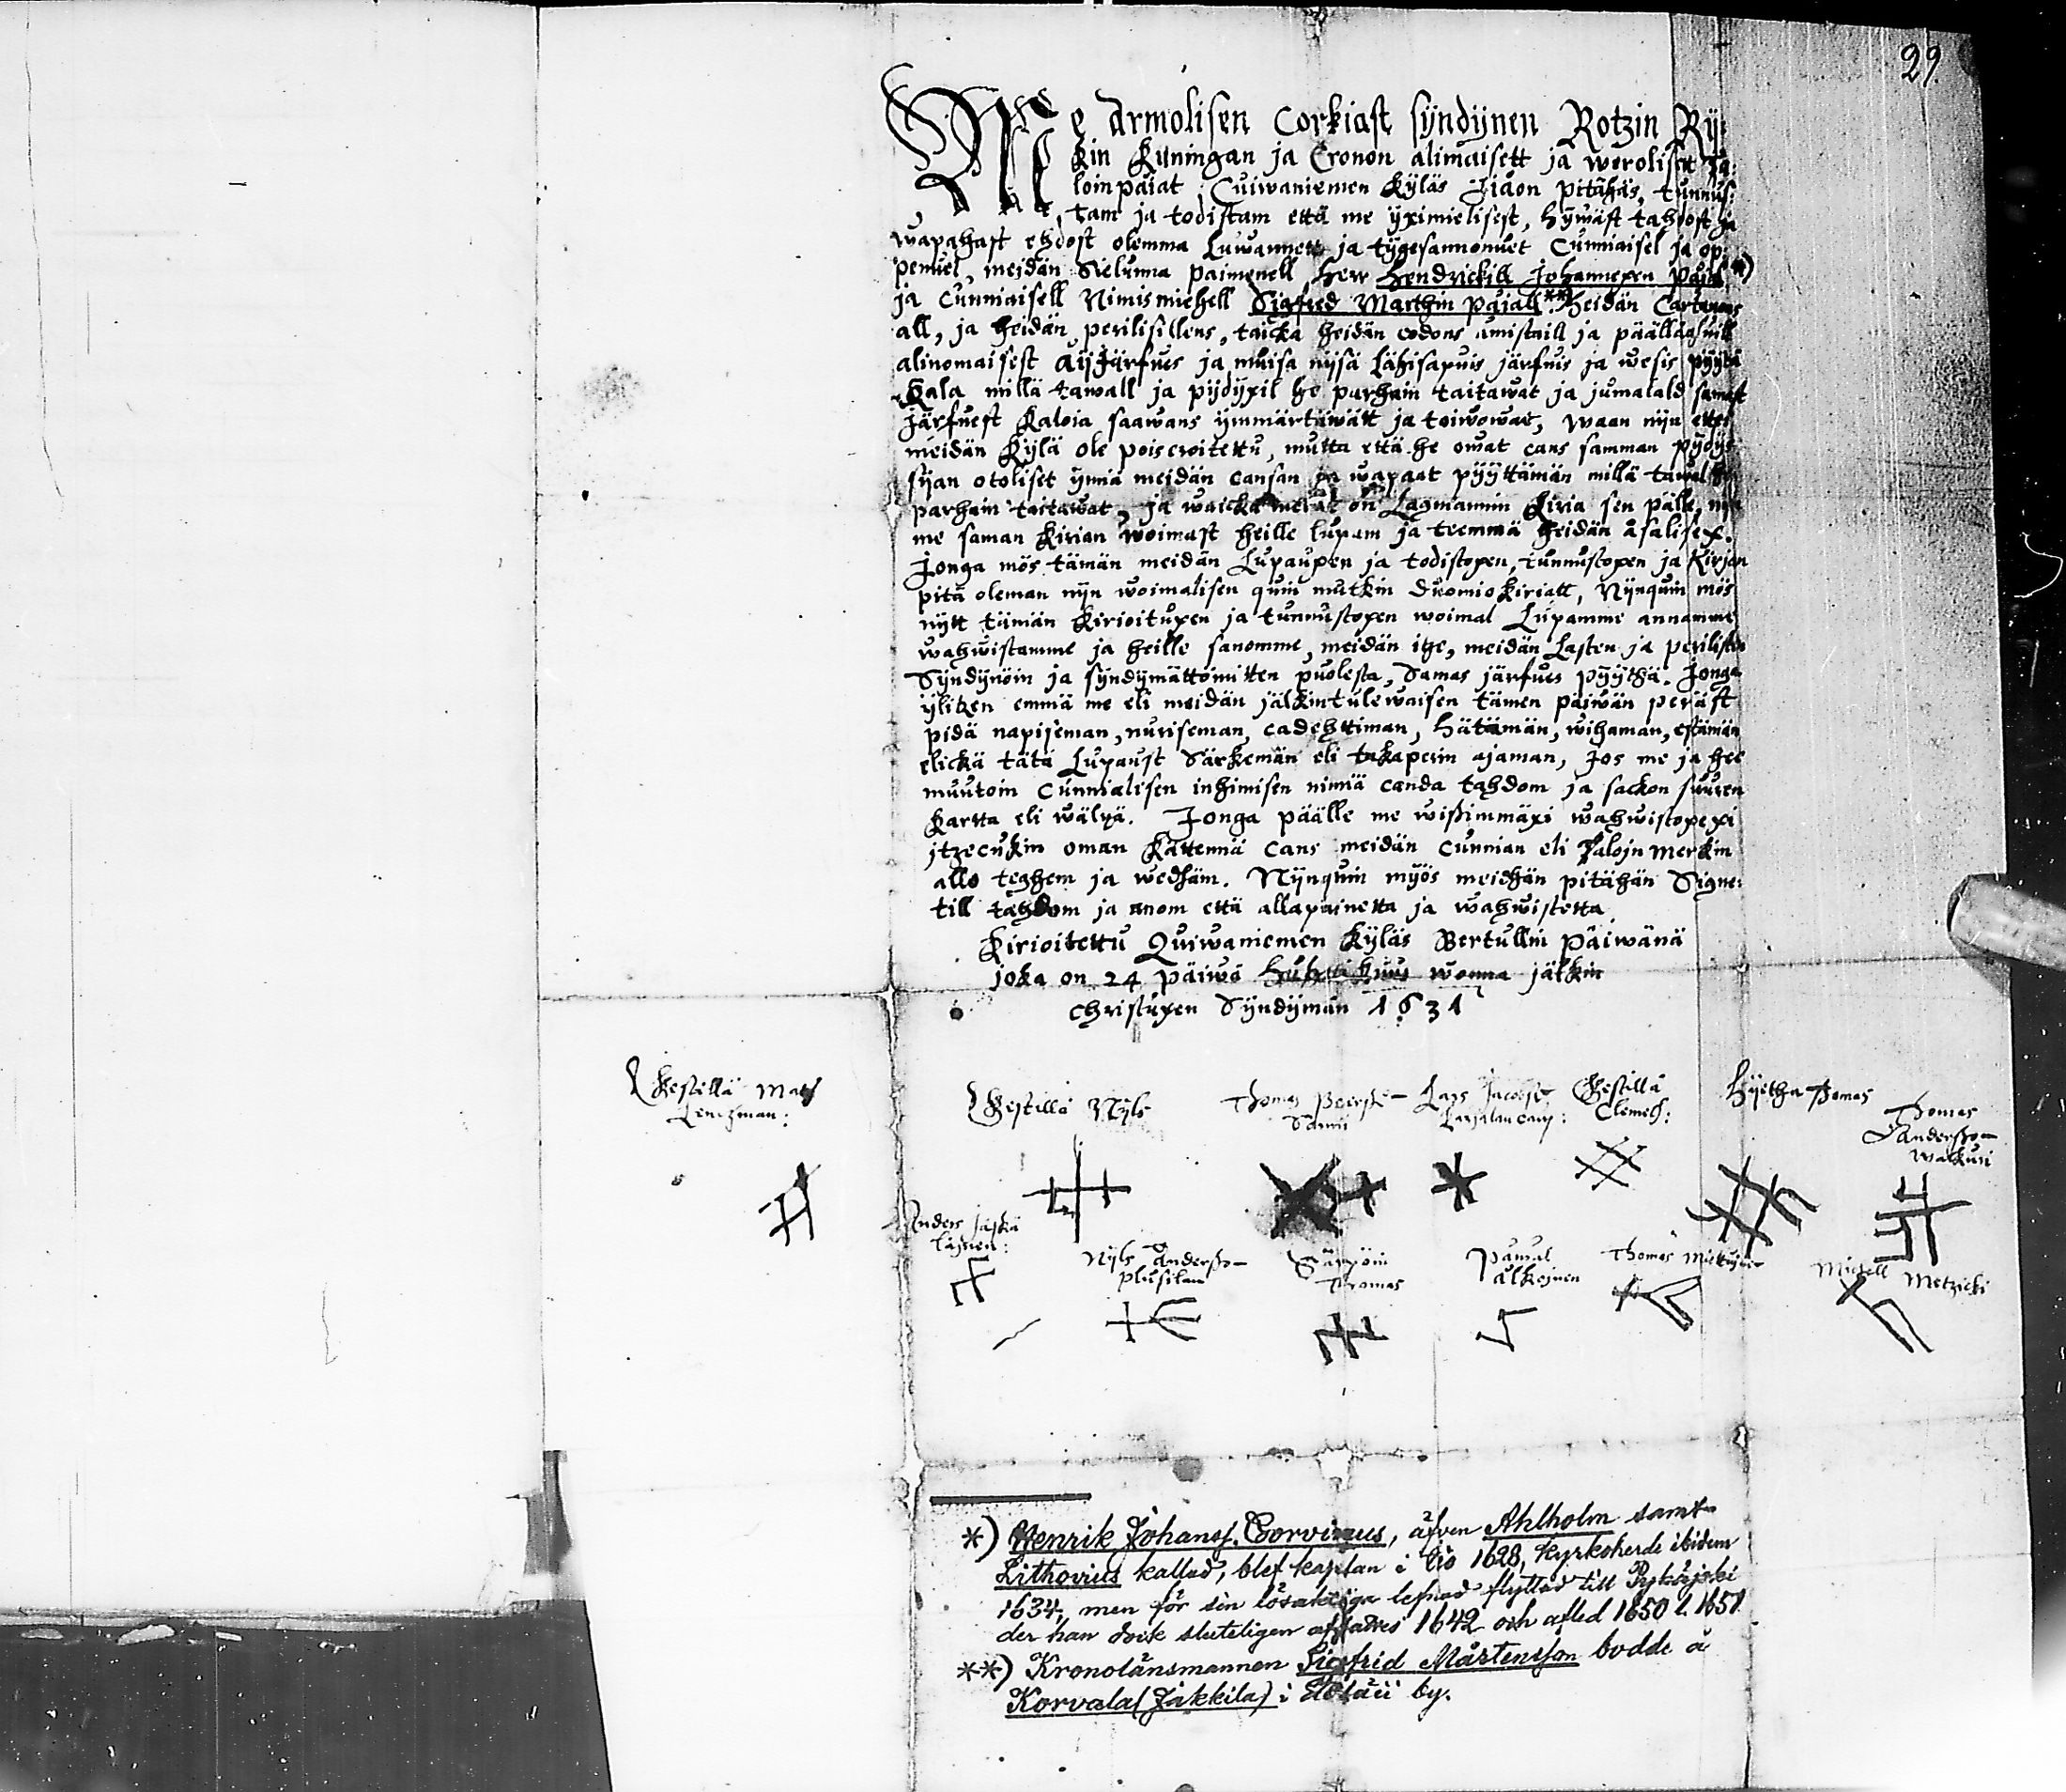 29
Me Armolisen Corkiast syndynen Rotzin Ry:
kin Kuningan ja Cronon alimaisett ja werolisett Ta:
loinpäiat Cuiwaniemen Kyläs Jiåon pitähäs, tunnus:
tam ja todistam että me yximielisest, hywäst tahdost ja
wapahast ehdost olemma Luwannett ja tygesannonuet Cunniaisel ja op:
penuel, meidän Sielunna paimenell, herr Hendrickill Johannexen Pojal *)
ja Cunniaisell Nimismiehell Sigfred Marthin päiall **) heidän Cartanons
all, ja heidän perilisillens, taicka heidän codons åmistaill ja päälläasuill
alinomaisest Äijjärfues ja muisa nijsä Lähisapuis järfuis ja wesis pyytä
Kala millä tawall ja pydyxil he parhain taitawat ja jumalald samast
järfuest Kaloia saawans ymmärtäwätt ja toiwowat, waan nijn ettei
meidän Kylä ole poiscroitettu, mutta että he owat cans samman pydys
sijan otoliset ynnä meidän cansan ja wapaat pyyttämän millä tawal he
parhain taitawat, ja waicka meill on Lagmannin Kiria sen päälle, nijn
me saman Kirian woimast heille lupam ja teemmä heidän åsalisex.
Jonga mös tämän meidän Lupauxen ja todistoxen, tunnustoxen ja Kirjan
pitä oleman nijn woimalisen quin mutkin duomiokiriatt, Nijnquin mös
nytt tämän Kirioituxen ja tunnustoxen woimal Lupamme annamme
wahwistamme ja heille sanomme, meidän itze, meidän Lasten ja perilisten
Syndynöin ja syndymättömitten puolesta, Samas järfues pyytää. Jonga
ylitzen emmä me eli meidän jälkintulewaisen tämen päiwän peräst
pidä napisseman, nuriseman, cadehttiman, hätämän, wihaman, estämän
elickä tätä Lupaust Särkemän eli takaperin ajaman, Jos me ja hee
muutoin Cunnialisen inhimisen nimiä canda tahdom ja sackon suuren
Kartta eli wälyä. Jonga päälle me wissimmäxi wahwistoxexi
jtzecukin oman Kättennä cans meidän cunnian eli Talojn merkin
alla teghem ja wedhäm. Nijnquin myös meidhän pitähän Signe:
till tahdom ja anom että allapainetta ja wahwistetta.
Kirioitettu Quiwaniemen Kyläs Bertullin Päiwänä
joka on 24 päiwä wonna jälkin
christuxen Syndymän 1631
Kestillä Mats
Lentzman:
Kestillä Nyls
Thomas
Lars Jacobs
Kestillä
Clemets:
Hyetha Thomas
Thomas
Andersson
Walkuri
Anders
Nyls Andersson
Säupöin
Thomas
Påwal
Alkojnen
Thomas
Michell Metzicki
*) Henrik Johanss. Corvinus, äfven Ahlholm samt
Lithovius kallad, blef kaplan i Iio 1628, kyrkoherde ibidem
1634, men för sin lösaktiga lefnad flyttad till Pyhäjoki
der han dock sluteligen afsattes 1642 och afled 1650 l. 1651.
**) Kronolänsmannen Sigfrid Mårtensson bodde å
Korvala (Jakkila) i by.